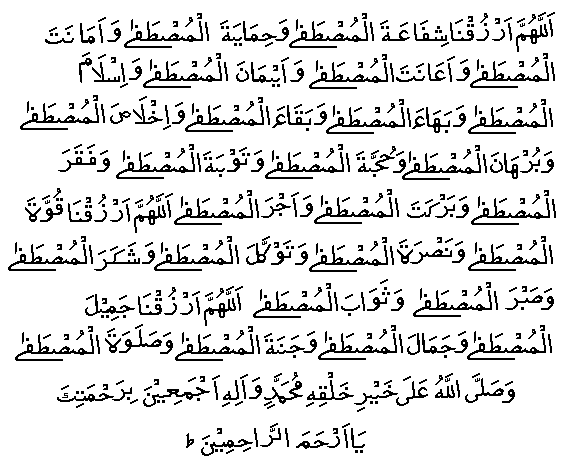 اَللّٰهُمَّ اَرْزُقْنَا شِفَاعَةَ الْمُصْطَفٰى وَحِمَايَةَ الْمُصْطَفٰى وَاَمَانَتَ
الْمُصْطَفٰى وَاَعَانَتَ الْمُصْطَفٰى وَاَيْمَانَ الْمُصْطَفٰى وَاِسْلَامَ
الْمُصْطَفٰى وَبَهَاءَ الْمُصْطَفٰى وَبَقَاءَ الْمُصْطَفٰى وَاِخْلَاصَ الْمُصْطَفٰى
وَبُرْهَانَ الْمُصْطَفٰى وَحُجَّبَةَ الْمُصْطَفٰى وَتَوْبَةَ الْمُصْطَفٰى وَفَقَرَ
الْمُصْطَفٰى وَبَرْكَتَ الْمُصْطَفٰى وَاَجْرَ الْمُصْطَفٰى اَللّٰهُمَّ اَرْزُقْنَا قُوَّةَ
الْمُصْطَفٰى وَنَصْرَةَ الْمُصْطَفٰى وَتَوَكَّلَ الْمُصْطَفٰى وَشَكَرَ الْمُصْطَفٰى
وَصَبْرَ الْمُصْطَفٰى وَثَوَابَ الْمُصْطَفٰى اَللّٰهُمَّ اَرْزُقْنَا جَمِيْلَ
الْمُصْطَفٰى وَجَمَالَ الْمُصْطَفٰى وَجَنَةَ الْمُصْطَفٰى وَصَلَوةَ الْمُصْطَفٰى
وَصَلَّى اللّٰهُ عَلٰى خَيْرِ خَلْقِهٖ مُحَمَّدٍ وَاٰلِهٖ اَجْمَعِيْنَ بِرَحْمَتِكَ
يَا اَرْحَمَ الرَّاحِمِيْنَ ط